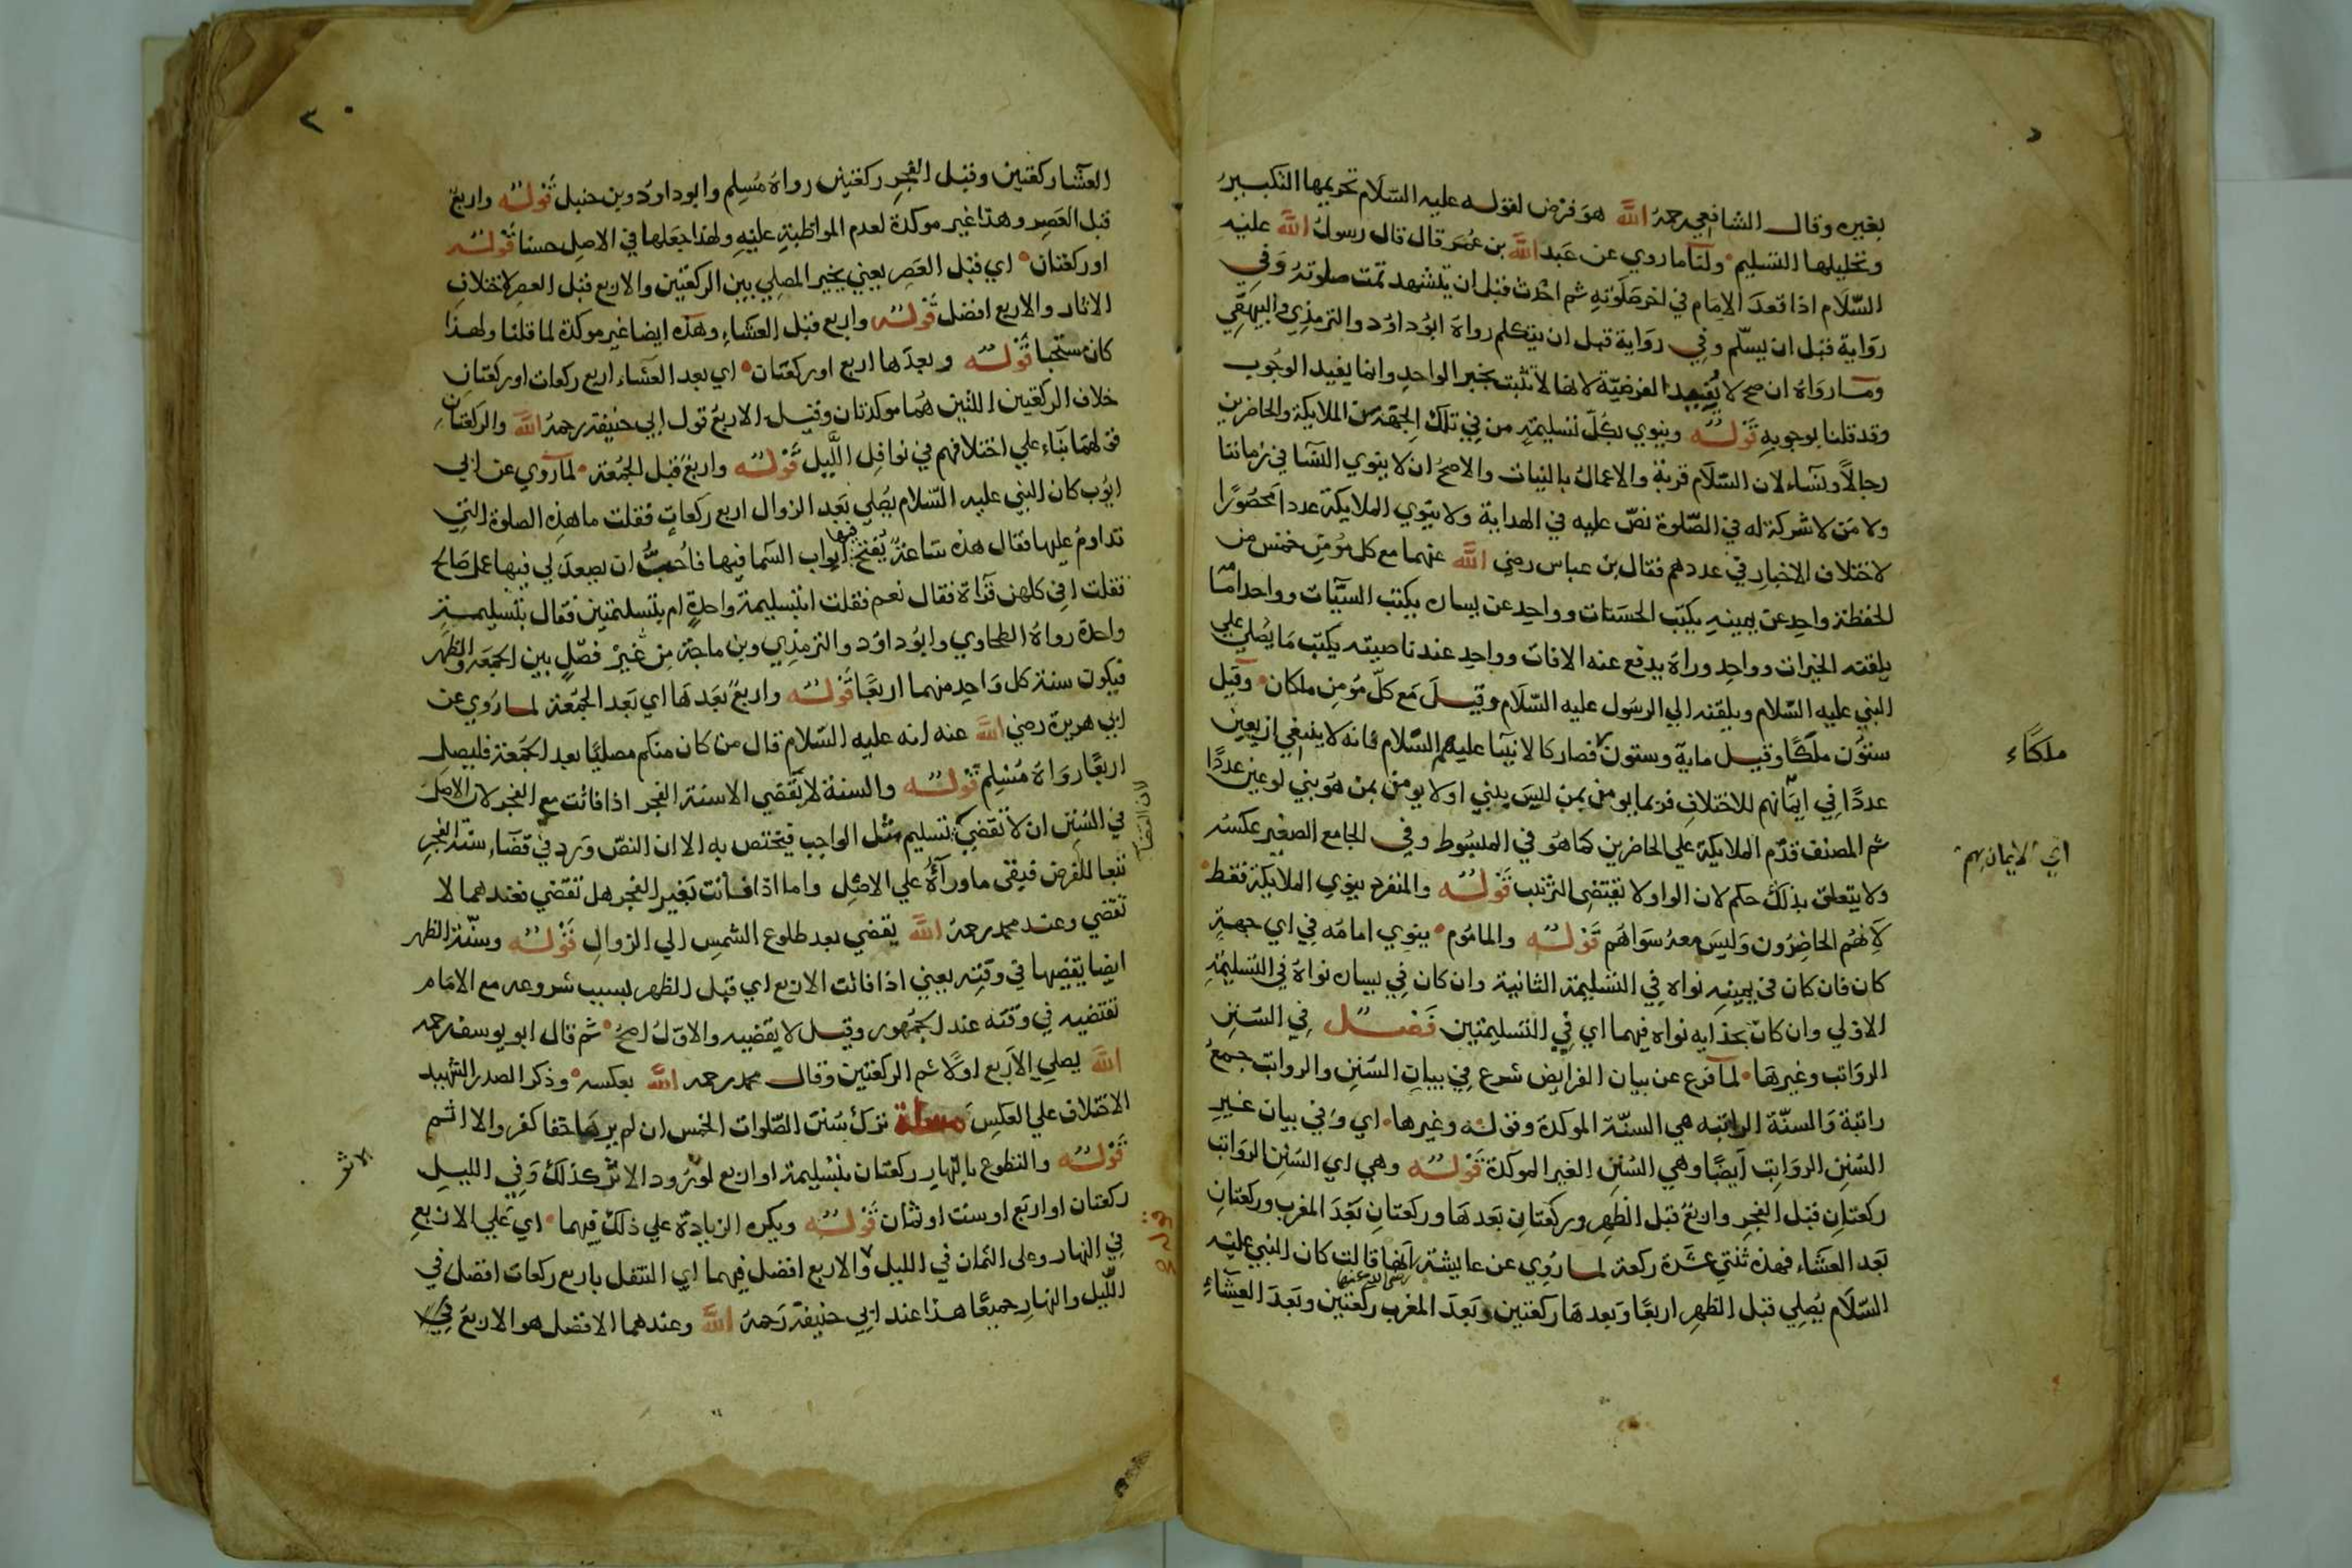 بغيره وقال الشافعي رحمه الله هو فرض لقوله عليه السلام تحريمها التكبير
وتحليلها التسليم ولنا ما روي عن عبد الله بن عمر قال قال رسول الله عليه
السلام اذا قعد الامام في اخر صلوته ثم احدث قبل ان يتشهد تمت صلوته وفي
رواية قبل ان يسلم وفي رواية قبل ان يتكلم رواه ابو داود والترمذي والبيهقي
وما رواه ان صح لا يفيد الفرضية لانها لا تثبت بخبر الواحد وانما يفيد الوجوب
وقد قلنا بوجوبه قوله وينوي بكل تسليمة من في تلك الجهة من الملايكة والحاضرين
رجالا ونساء لان السلام قربة والاعمال بالنيات والاصح ان لا ينوي النسا في زماننا
ولا من لا شركة له في الصلوة نص عليه في الهداية ولا ينوي الملايكة عددا محصورا
لاختلاف الاخبار في عددهم فقال بن عباس رضي الله عنهما مع كل مؤمن خمس من
الحفظة واحد عن يمينه يكتب الحسنات وواحد عن يساره يكتب السيآت وواحد امامه
يلقنه الخيرات وواحد وراه يدفع عنه الافات وواحد عند ناصيته يكتب ما يصلي علي
النبي عليه السلام ويلقنه الي الرسول عليه السلام وقيل مع كل مؤمن ملكان وقيل
ستون ملكا وقيل ماية وستون فصار كالانبيا عليهم السلام فانه لا ينبغي ان يعين
ملكاء
عددا في ايمانهم للاختلاف فربما يومن بمن ليس بنبي اولا يومن بمن هو نبي لو عين عددا
ثم المصنف قدم الملايكة علي الحاضرين كما هو في المبسوط وفي الجامع الصغير عكسه
اي الايمان بهم
ولا يتعلق بذلك حكم لان الواو لا تقتضي الترتيب قوله والمنفرد ينوي الملايكة فقط
لانهم الحاضرون وليس معه سواهم قوله والماموم ينوي امامه في اي جهة
كان فان كان في يمينه نواه في التسليمة الثانية وان كان في يساره نواه في التسليمة
الاولي وان كان بحذايه نواه فيهما اي في التسليمتين فصل في السنن
الرواتب وغيرها لما فرغ عن بيان الفرايض شرع في بيان السنن والرواتب جمع
راتبة والسنة الراتبه هي السنة الموكدة وقوله وغيرها اي وفي بيان غير
السنن الرواتب ايضا وهي السنن الغير الموكدة قوله وهي اي السنن الرواتب
ركعتان قبل الفجر واربع قبل الظهر وركعتان بعدها وركعتان بعد المغرب وركعتان
بعد العشاء فهذه ثنتي عشرة ركعة لما روي عن عايشة رضي الله عنها انها قالت كان النبي عليه
السلام يصلي قبل الظهر اربعا وبعدها ركعتين وبعد المغرب ركعتين وبعد العشاء
٣٠
العشا ركعتين وقبل الفجر ركعتين رواه مسلم وابو داود وبن حنبل قوله واربع
قبل العصر وهذا غير موكدة لعدم المواظبة عليه ولهذا جعلها في الاصل حسنا قوله
او ركعتان اي قبل العصر يعني يخير المصلي بين الركعتين والاربع قبل العصر لاختلاف
الاثار والاربع افضل قوله واربع قبل العشاء وهذه ايضا غير موكدة لما قلنا ولهذا
كان مستحبا قوله وبعدها اربع او ركعتان اي بعد العشاء اربع ركعات او ركعتان
خلاف الركعتين اللتين هما موكدتان وقيل الاربع قول ابي حنيفة رحمه الله والركعتان
قولهما بناء علي اختلافهم في نوافل الليل قوله واربع قبل الجمعة لما روي عن ابي
ايوب كان النبي عليه السلام يصلي بعد الزوال اربع ركعات فقلت ما هذه الصلوة التي
تداوم عليها فقال هذه ساعة يفتح ابواب السما فيها فاحب ان يصعد لي فيها عمل صالح
فقلت افي كلهن قراة فقال نعم فقلت ابتسليمة واحدة ام بتسليمتين فقال بتسليمة
واحدة رواه الطحاوي وابو داود والترمذي وبن ماجة من غير فصل بين الجمعه والظهر
فيكون سنة كل واحد منهما اربعا قوله واربع بعدها اي بعد الجمعة لما روي عن
ابي هريرة رضي الله عنه انه عليه السلام قال من كان منكم مصليا بعد الجمعة فليصل
اربعا رواه مسلم قوله والسنة لا تقضي الا سنة الفجر اذا فاتت مع الفجر لان الاصل
في السنن ان لا تقضي تسليم مثل الواجب فيختص به الا ان النص ورد في قضاء سنة الفجر
تبعا للفرض فبقي ما وراءه علي الاصل واما اذا فاتت بغير الفجر هل تقضي فعندهما لا
تقضي وعند محمد رحمه الله يقضي بعد طلوع الشمس الي الزوال قوله وسنة الظهر
ايضا يقضيها في وقته يعني اذا فاتت الاربع اي قبل الظهر بسبب شروعه مع الامام
تقتضيه في وقته عند الجمهور وقيل لا يقضيه والاول اصح ثم قال ابو يوسف رحمه
الله يصلي الاربع اولا ثم الركعتين وقال محمد رحمه الله بعكسه وذكر الصدر الشهيد
الاختلاف علي العكس مسلة ترك سنن الصلوات الخمس ان لم يرها حقا كفر والا اثم
قوله والتطوع بالنهار ركعتان بتسليمة او اربع لورود الاثر كذلك وفي الليل
الاثر
ركعتان او اربع او ست او ثمان قوله ويكره الزيادة علي ذلك فيهما اي علي الاربع
في النهار وعلى الثمان في الليل والاربع افضل فيهما اي التنفل باربع ركعات افضل في
الليل والنهار جميعا هذا عند ابي حنيفة رحمه الله وعندهما الافضل هو الاربع في